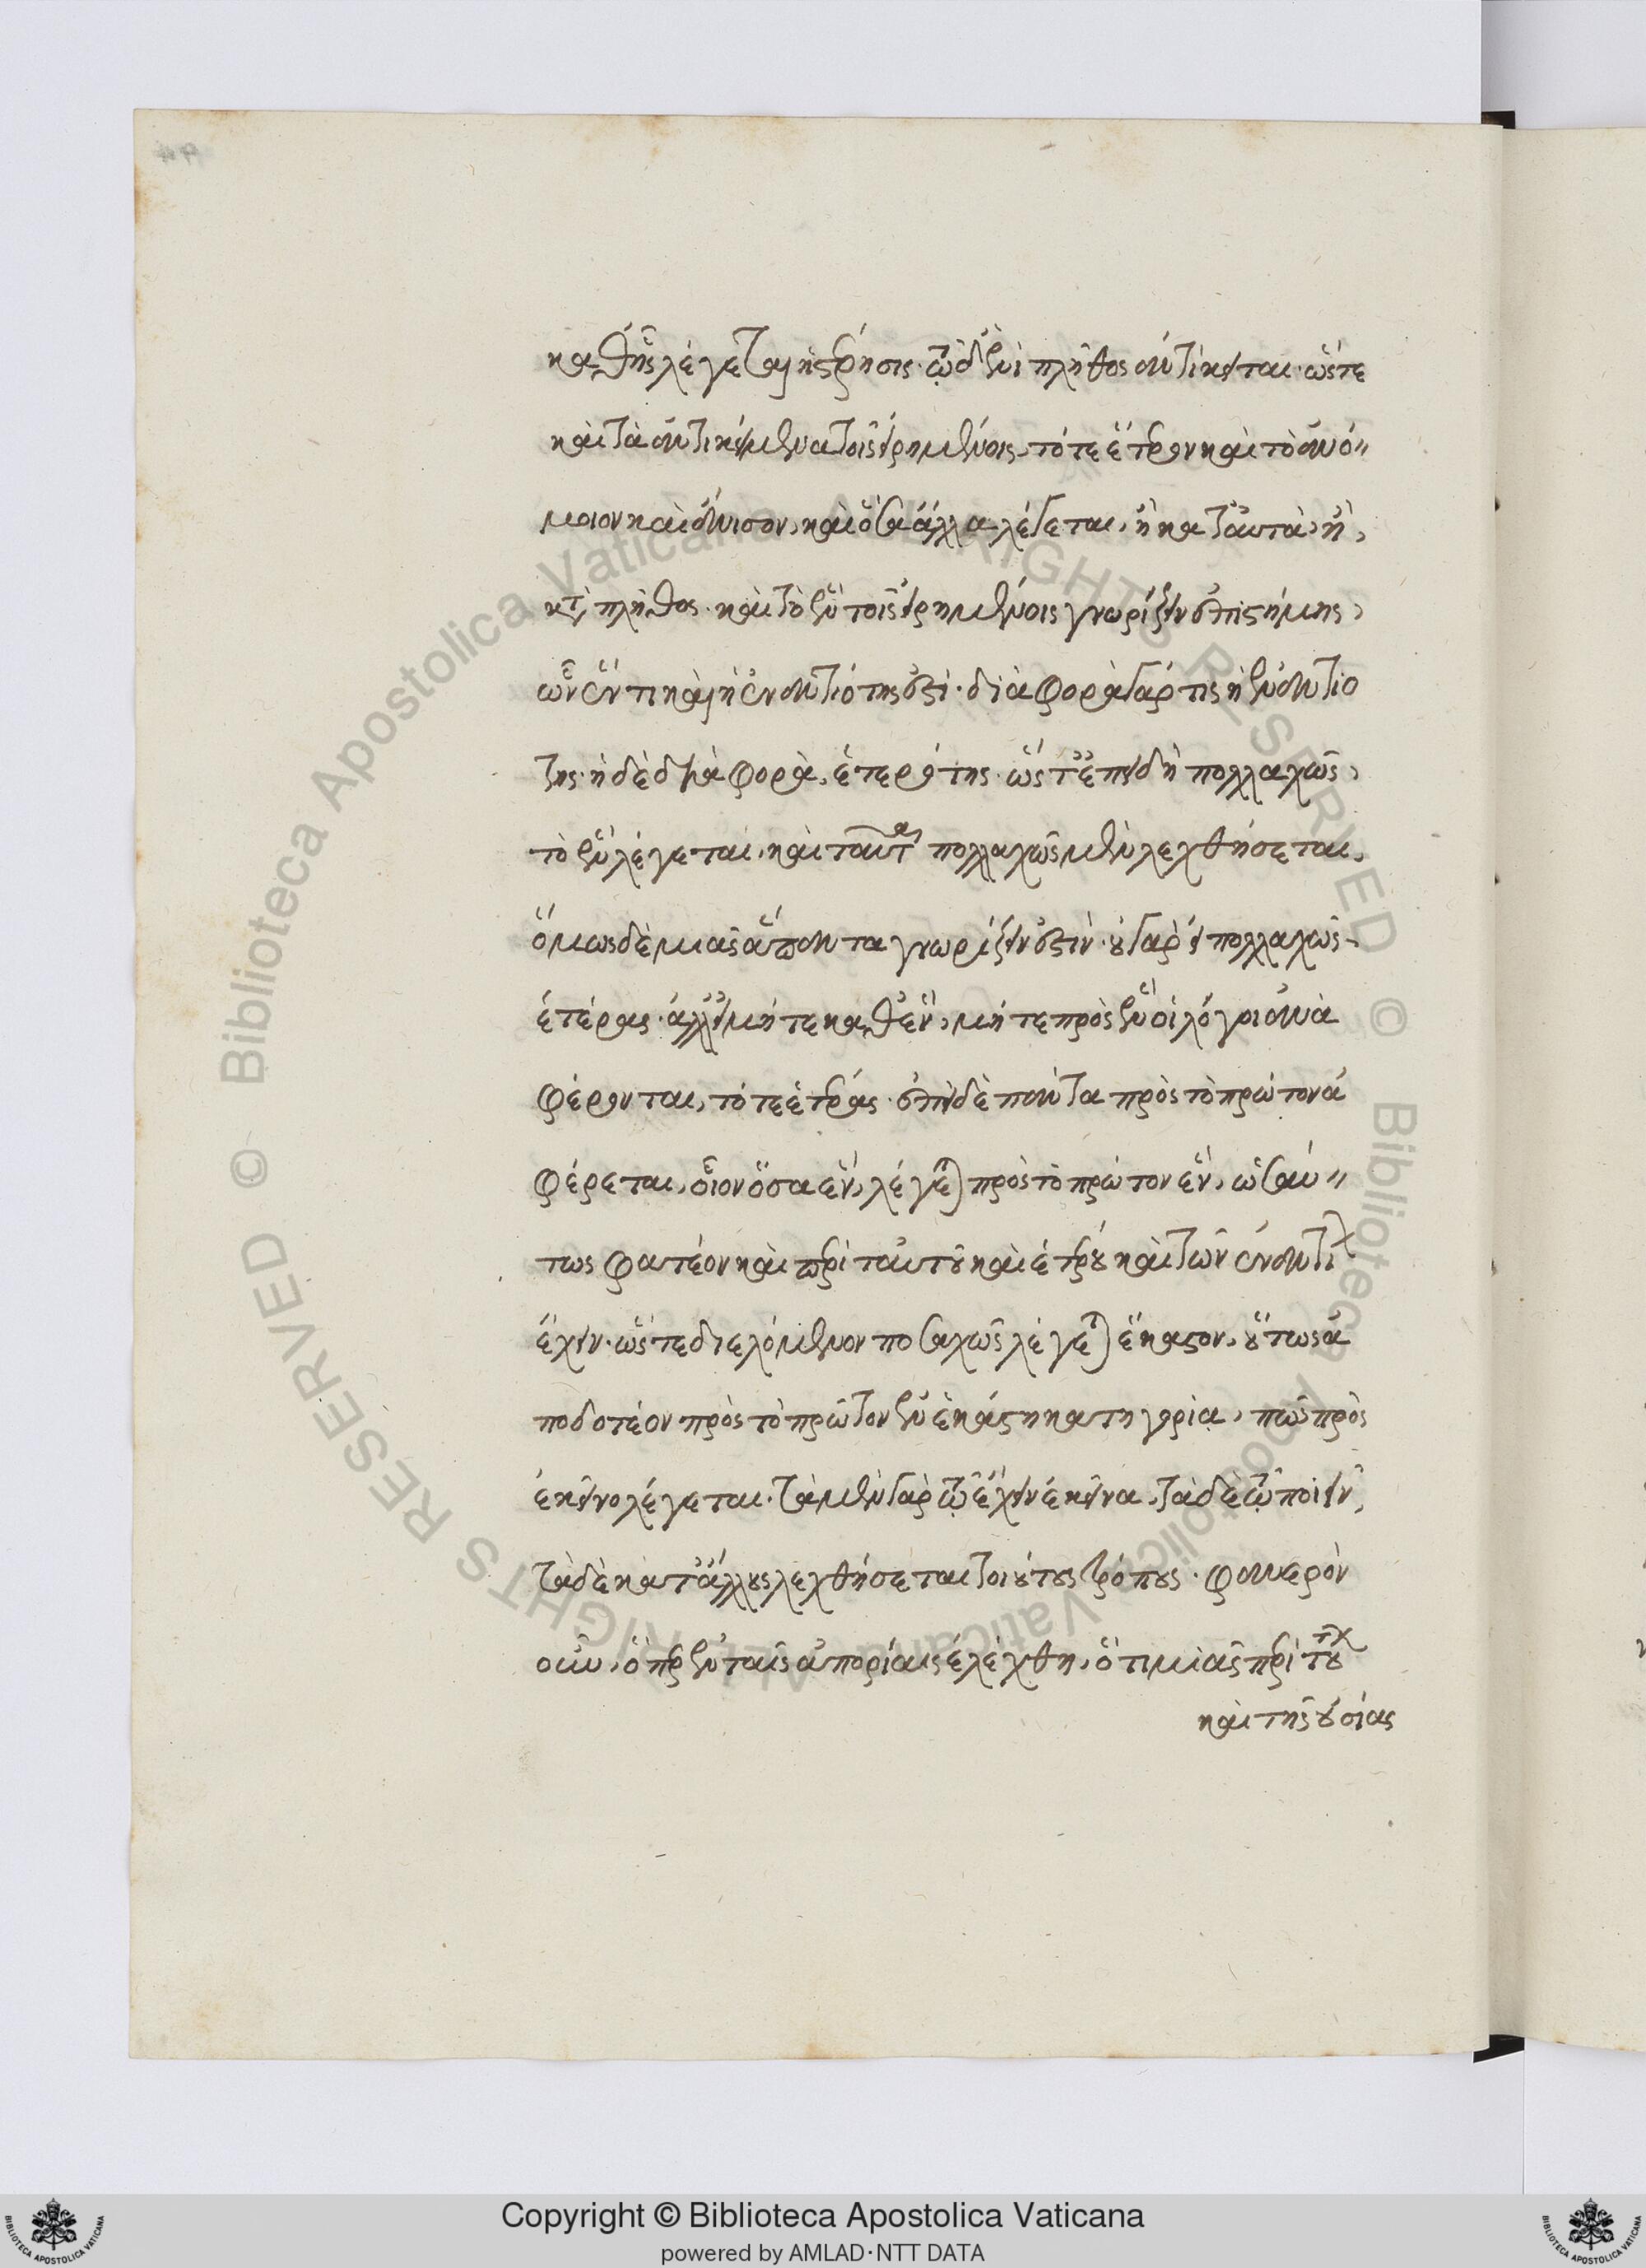 καθ' ἧς λέγεται ἡ στέρησις· τῷ δ' ἑνὶ πλῆθος ἀντίκειται· ὥστε
καὶ τὰ ἀντικείμενα τοῖς εἰρημένοις, τό τε ἕτερον καὶ τὸ ἀνό〃
μοιον καὶ ἄνισον, καὶ ὅσα ἄλλα λέγεται, ἢ κατ' αὐτὰ, ἢ,
κτ̀ πλῆθος· καὶ τὸ ἓν τοῖς εἰρημένοις γνωρίζειν ἐπιστήμης,
ὧν ἕν τι καὶ ἡ ἐναντιότης ἐστί· διαφορὰ γάρ τις ἡ ἐναντιο
της· ἡ δὲ διαφορὰ, ἑτερότης· ὥστ' ἐπειδὴ πολλαχῶς,
τὸ ἓν λέγεται, καὶ ταῦτα πολλαχῶς μὲν λεχθήσεται,
ὅμως δὲ μιᾶς ἅπαντα γνωρίζειν ἐστίν· οὐ γὰρ εἰ πολλαχῶς,
ἑτέρας· ἀλλ' εἰ μήτε καθ' ἕν, μήτε πρὸς ἓν οἱ λόγοι ἀνα
φέρονται, τό τε ἑτέρας· ἐπεὶ δὲ πάντα πρὸς τὸ πρῶτον ἀ
φέρεται, οἷον ὅσα ἕν, λέγεται πρὸς τὸ πρῶτον ἕν, ὡσαύ〃
τως φατέον καὶ περὶ ταυτοῦ καὶ ἑτέρου καὶ τῶν ἐναντίων
ἔχειν· ὥστε διελόμενον ποσαχῶς λέγεται ἕκαστον, οὕτως ἀ
ποδοτέον πρὸς τὸ πρῶτον ἐν ἑκάστῃ κατηγορίᾳ, πῶς πρὸς
ἐκεῖνο λέγεται· τὰ μὲν γὰρ τῷ ἔχειν ἐκεῖνα, τὰ δὲ τῷ ποιεῖν,
τὰ δὲ κατ' ἄλλους λεχθήσεται τοιούτους τρόπους· φανερὸν
οὖν, ὅπερ ἐν ταῖς ἀπορίαις ἐλέχθη, ὅτι μιᾶς περὶ τούτων
καὶ τῆς οὐσίας
Copyright © Biblioteca Apostolica Vaticana
powered by AMLAD·NTT DATA